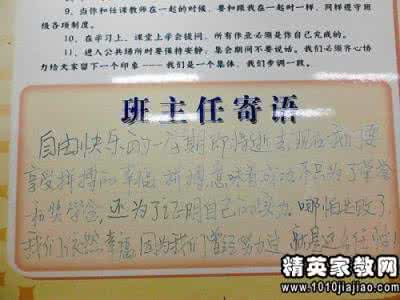 9、当你和任课教师在一起的时候，要和跟我在一起时一样，同样遵守班
级各项制度。
10、在学习上，课堂上学会提问，所有作业必须是你自己完成的。
11、进入公共场所时要保持安静；集会期间不要说话。我们必须齐心协
力给大家留下一个印象——我们是一个集体，我们步调一致。
班主任寄语
自由快乐的一星期即将逝去，现在我们要
享受拼搏的幸福，拼搏意味着成功不只为了荣誉
和奖学金，还为了证明自己的实力，哪怕失败了
我们依然幸福，因为我们曾经努力过，
精英家教网
www.1010jiajiao.com